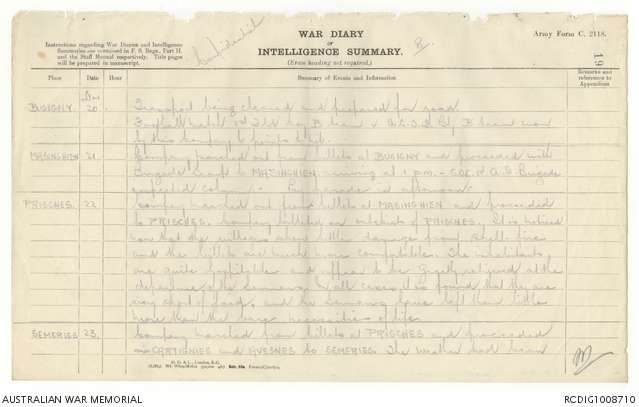 Confidential
WAR DIARY
or
INTELLIGENCE SUMMARY.
(Erase heading not required.)
Army Form C. 2118.
Instructions regarding War Diaries and Intelligence
Summaries are contained in F. S. Regs., Part II.
and the Staff Manual respectively. Title pages
will be prepared in manuscript.
8.
19
Place Date Hour Summary of Events and Information Remarks and references to Appendices
BUSIGNY 20. Transport being cleaned and prepared for road
Football match 1st Fld Coy B team v B team won
by this Company
MAZINGHIEN 21 Company marched out from billets at BUSIGNY and proceeded with
Brigade Group to MAZINGHIEN arriving at 1 p.m. Brigade
inspected column. parades in afternoon.
PRISCHES. 22 Company marched out from billets at MAZINGHIEN and proceeded
to PRISCHES. Company billeted on outskirts of PRISCHES. It is noticed
now that the villages show little damage from shell-fire
and the billets are much more comfortable. The inhabitants
are quite hospitable and appear to be greatly relieved at the
departure of the Germans. In all cases it is found that they are
very short of food, and the Germans have left them little
more than the bare necessities of life.
SEMERIES 23. Company marched from billets at PRISCHES and proceeded
via CARTIGNIES and AVESNES to SEMERIES. The weather had been
D. D. & L., London, E.C.
AUSTRALIAN WAR MEMORIAL
RCDIG1008710